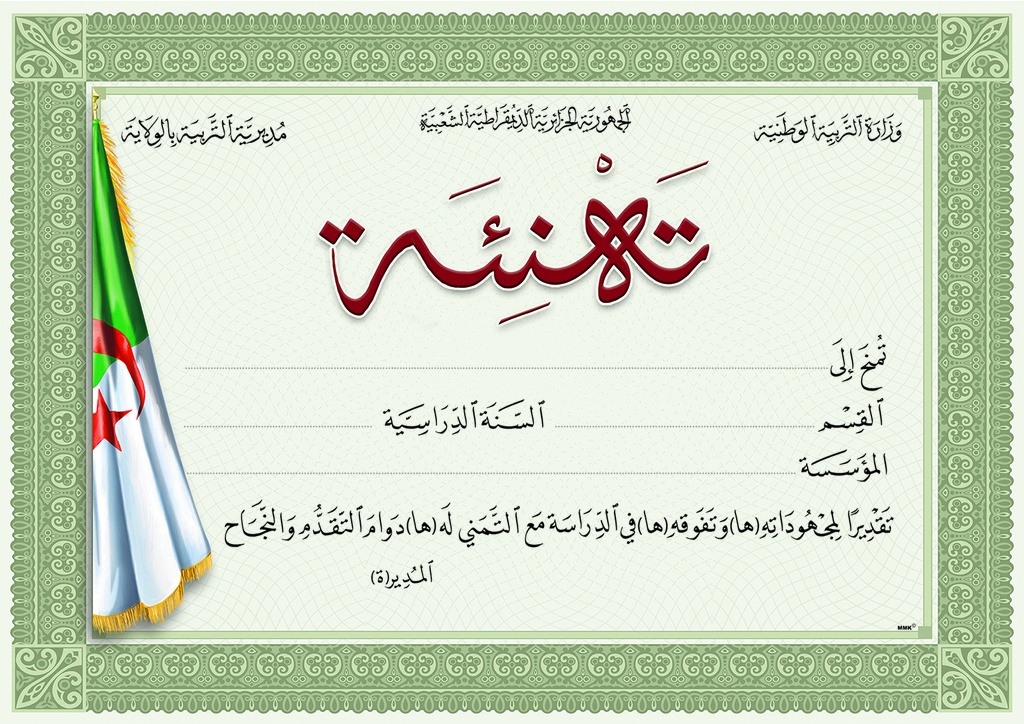 الجمهورية الجزائرية الديمقراطية الشعبية
وَزَارَة ٱلتَّربِيَة ٱلوَطَنِيَة
مُدِيرِيَّة ٱلتَّربِيَة بِالوِلَايَة
تَهْنِئَة
تُمنَح إِلَى
ٱلقِسْم ٱلسَّنَة ٱلدِّرَاسِيَّة
المؤَسَسَة
تَقْدِيرًا لِمجْهُودَاتِهِ(ها)وَتَفَوقهِ(ها)في ٱلدِّرَاسَة مَعَ ٱلتَّمَني لَه(ها)دَوامَ ٱلتَّقَدُّم وَالنَّجَاح
ٱلمُدِير(ة)
MMK©